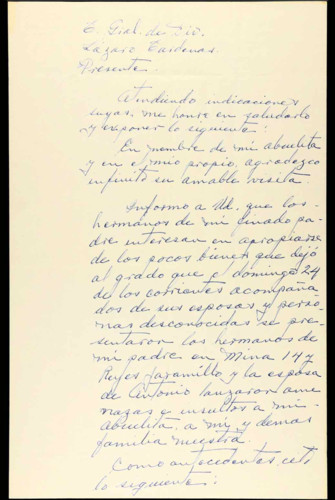 C. Gral. de Div.
Lázaro Cardenas.
Presente.
Atendiendo indicaciones
suyas, me honro en saludarlo
y exponer lo siguiente:
En nombre de mi abuelita
y en el mio propio, agradezco
infinito su amable visita.
Informo a Ud. que los
hermanos de mi finado pa-
dre interesan en apropiarse
de los pocos bienes que dejó
al grado que el domingo 24
de los corrientes acompaña-
dos de sus esposas y perso-
nas desconocidas se pre-
sentaron los hermanos de
mi padre en Mina 14 y
Reyes Jaramillo y la esposa
de Antonio lanzaron ame
nazas e insultos a mi
abuelita, a mi y demas
familia nuestra.
Como antecedentes,
lo siguiente: